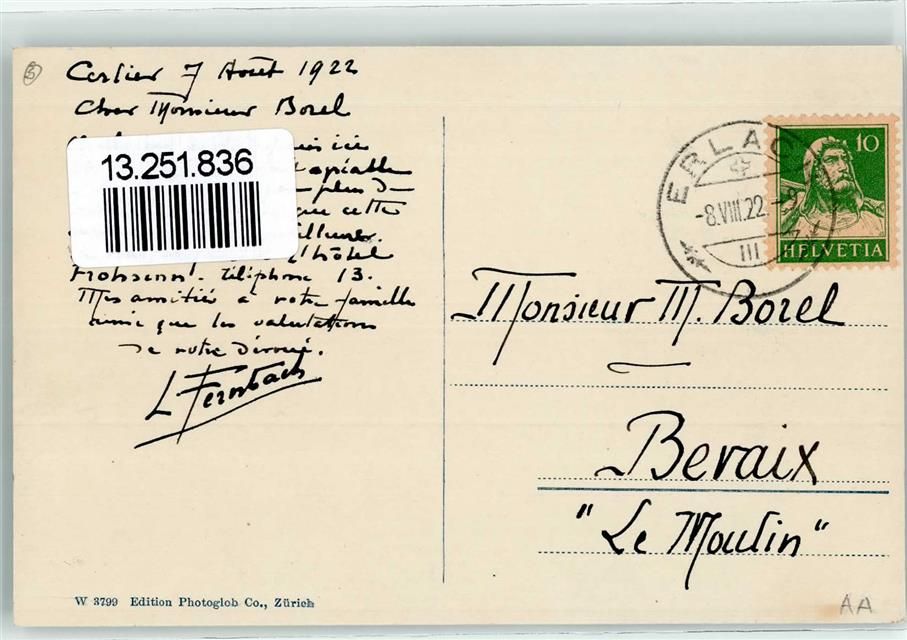 Cerlier 7 Août 1922
Cher Monsieur Borel
ici
plus
cette
l'hôtel
Téléphone 13.
Mes amitiés à votre famille
ainsi que les salutations
de votre dévoué.
L Fernbach
13.251.836
ERLACH
-8.VIII.22.-9
III
10
HELVETIA
Monsieur M. Borel
Bevaix
"Le Moulin"
W 3799 Edition Photoglob Co., Zürich
AA